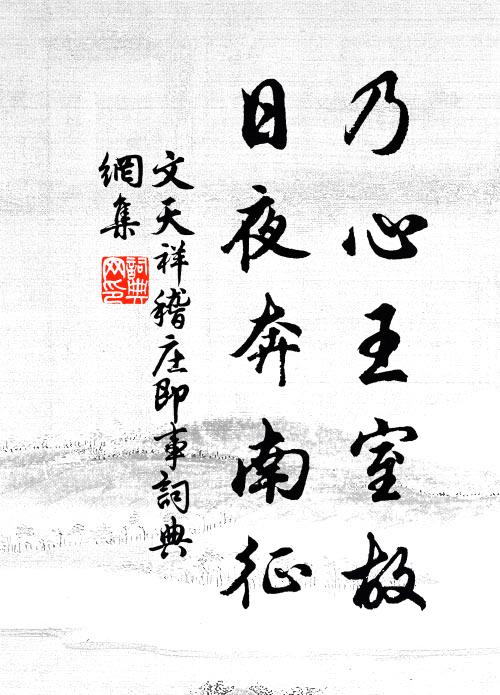 乃心王室故
日夜奔南征
文天祥稽庄即事詞典
網集
詞典网印